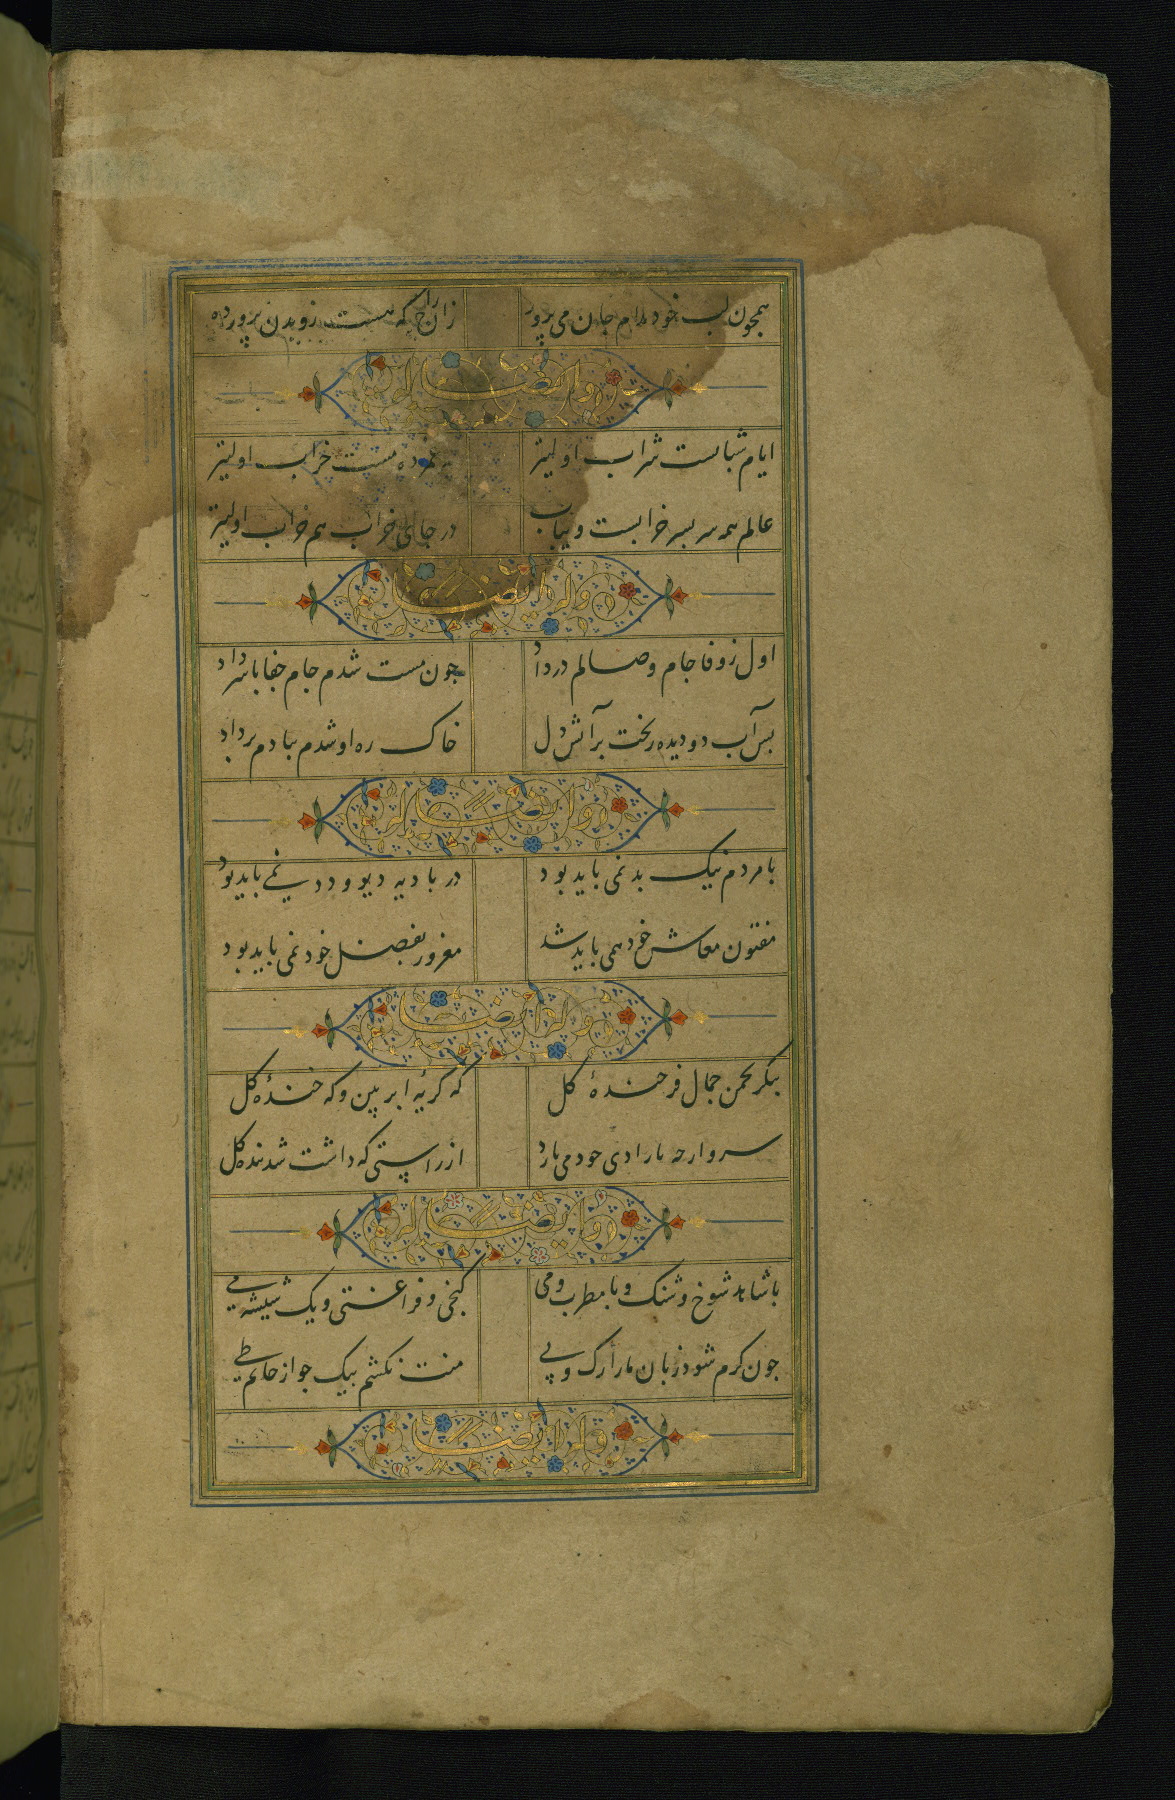 همچون لب خود مدام جان می پرور زان راح که هست روبدن پرورده
وله ایضا
ایام شبابست شراب اولیتر هر غمزده مست خراب اولیتر
عالم همه سر بسر خرابست و یباب در جای خراب هم خراب اولیتر
وله ایضا
اول ز وفا جام وصالم در داد چون مست شدم جام جفا با سر داد
بس آب دو دیده ریخت بر آتش دل خاک ره او شدم ببادم برداد
وله ایضا
با مردم نیک بد نمی باید بود در بادیه دیو و دد نمی باید بود
مفتون معاش خود همی باید شد مغرور بفضل خود نمی باید بود
وله ایضا
بنگر بچمن جمال فرخنده گل که گریه ابر بین و که خنده گل
سرو ارچه بازادی خود می نازد از راستی که داشت شد بنده گل
وله ایضا
با شاهد شوخ و شنک و با مطرب و می کنجی و فراغتی و یک شیشه می
چون کرم شود ز بان ما را رک و پی منت نکشم بیک جو از حاتم طی
وله ایضا